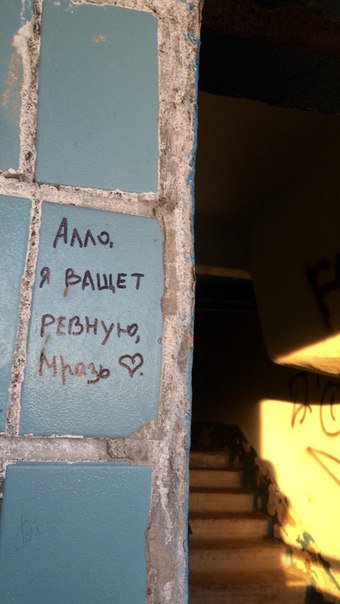 Алло,
я ващет
ревную,
Мразь ♡.